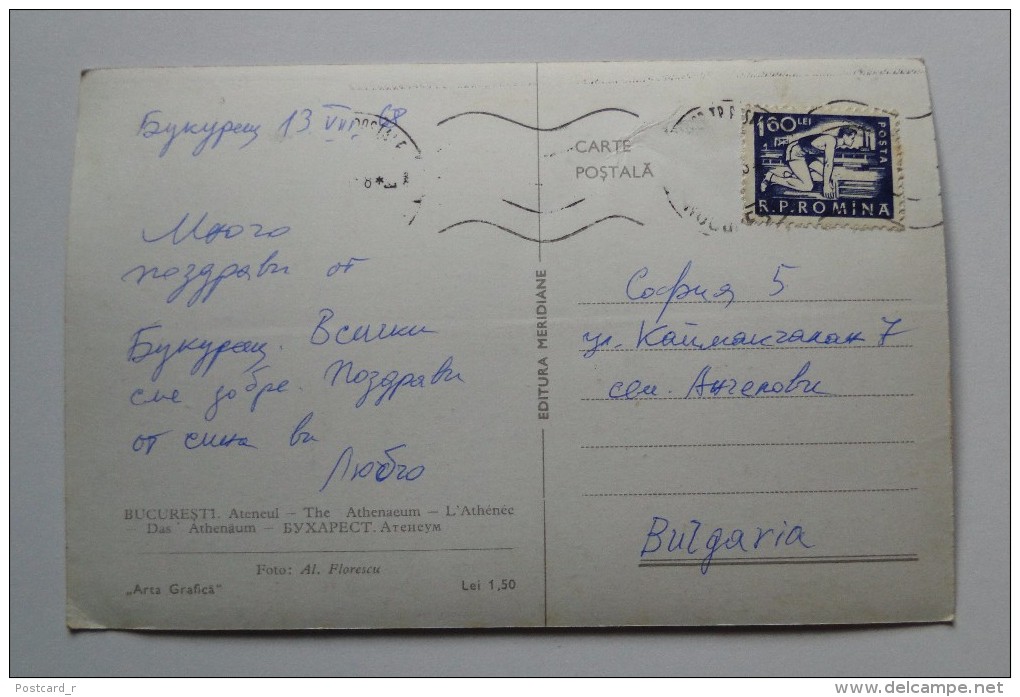 Букурещ 13 VIII 68
Много
поздрави от
Букурещ. Всички
сме добре. Поздрави
от сина ви
Любчо
BUCUREŞTI. Ateneul – The Athenaeum – L'Athénée
Das Athenäum – БУХАРЕСТ. Атенеум
Foto: Al. Florescu
„Arta Grafică" Lei 1,50
EDITURA MERIDIANE
CARTE
POŞTALĂ
1 60 LEI
POSTA
R.P.ROMINA
София 5
ул. Каймакчалан 7
сем. Ангелови
Bulgaria
Postcard_r
www.delcampe.net